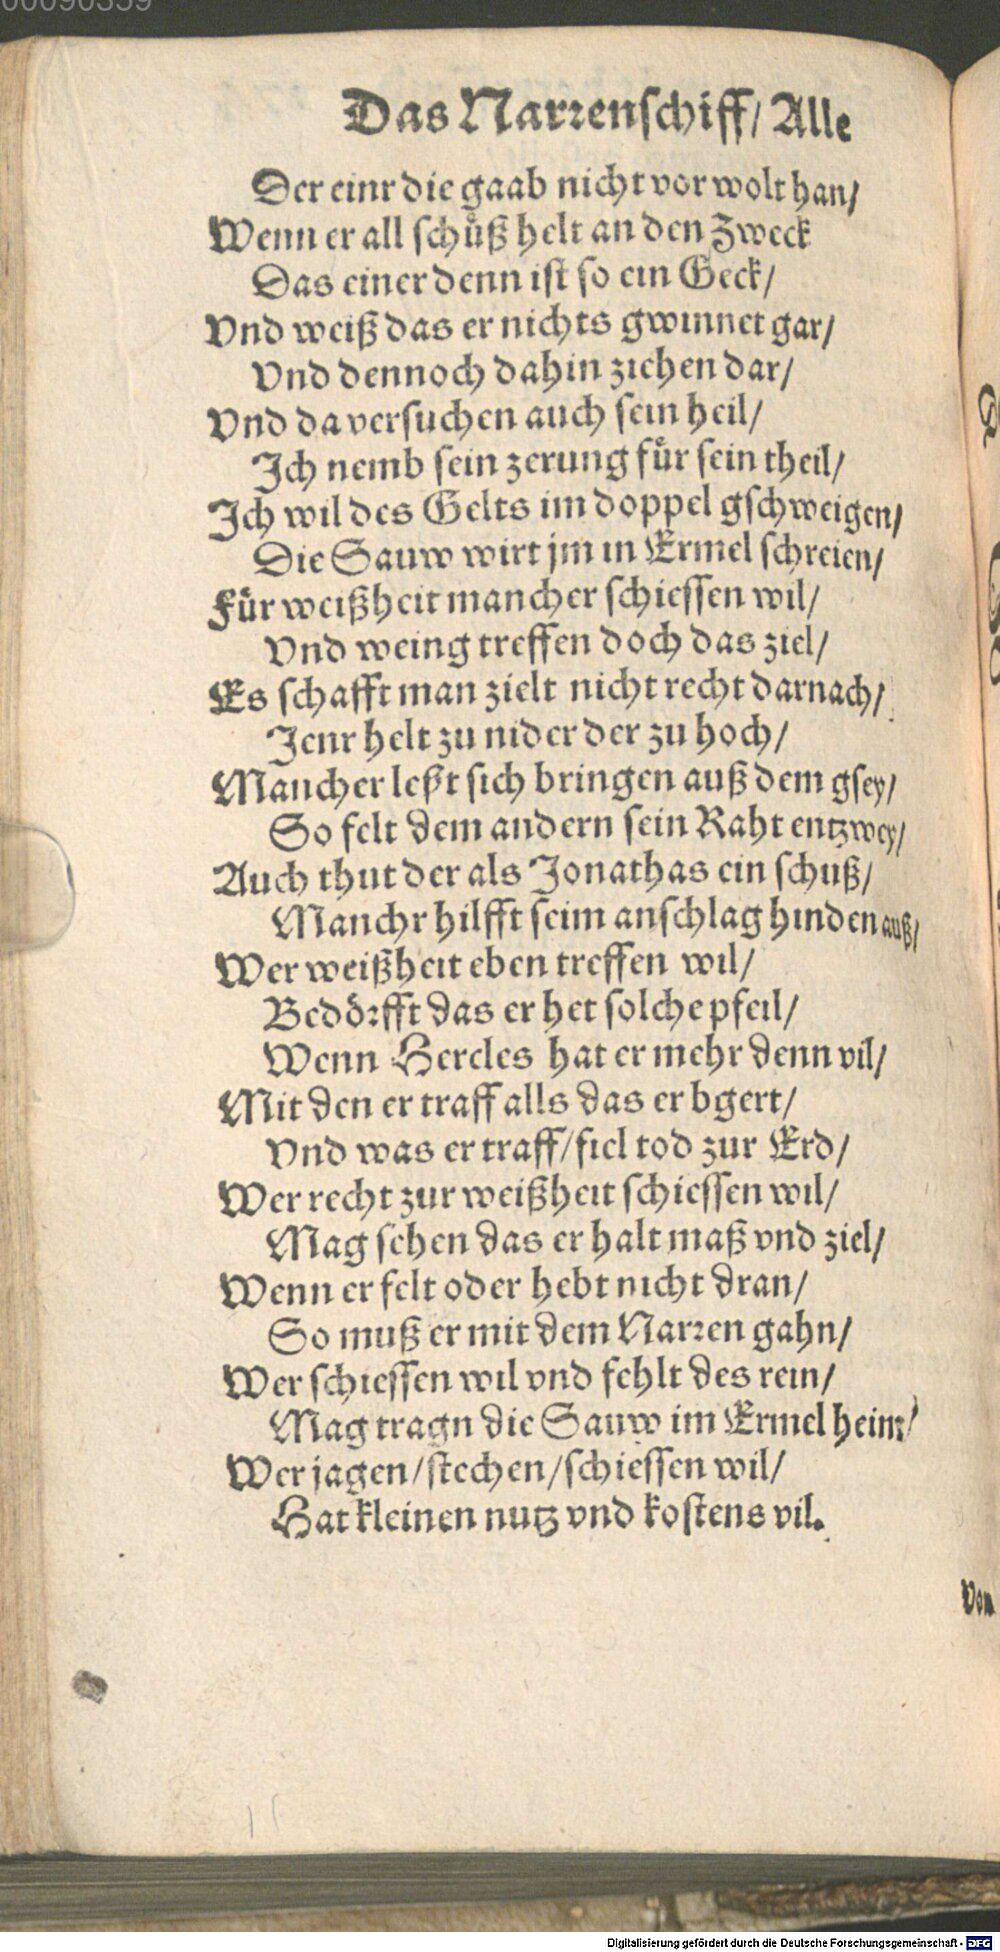 00090359
Das Narrenschiff/ Alle
Der einr die gaab nicht vor wolt han/
Wenn er all schüß helt an den Zweck
Das einer denn ist so ein Geck/
Vnd weiß das er nichts gwinnet gar/
Vnd dennoch dahin ziehen dar/
Vnd da versuchen auch sein heil/
Ich nemb sein zerung für sein theil/
Ich wil des Gelts im doppel gschweigen/
Die Sauw wirt jm in Ermel schreien/
Für weißheit mancher schiessen wil/
Vnd weing treffen doch das ziel/
Es schafft man zielt nicht recht darnach/
Jenr helt zu nider der zu hoch/
Mancher leßt sich bringen auß dem gsey/
So felt dem andern sein Raht entzwey/
Auch thut der als Jonathas ein schuß/
Manchr hilfft seim anschlag hinden auß/
Wer weißheit eben treffen wil/
Bedörfft das er het solche pfeil/
Wenn Hercles hat er mehr denn vil/
Mit den er traff alls das er bgert/
Vnd was er traff/ fiel tod zur Erd/
Wer recht zur weißheit schiessen wil/
Mag sehen das er halt maß vnd ziel/
Wenn er felt oder hebt nicht dran/
So muß er mit dem Narren gahn/
Wer schiessen wil vnd fehlt des rein/
Mag tragn die Sauw im Ermel heim/
Wer jagen/ stechen/ schiessen wil/
Hat kleinen nutz vnd kostens vil.
Von
Digitalisierung gefördert durch die Deutsche Forschungsgemeinschaft - DFG